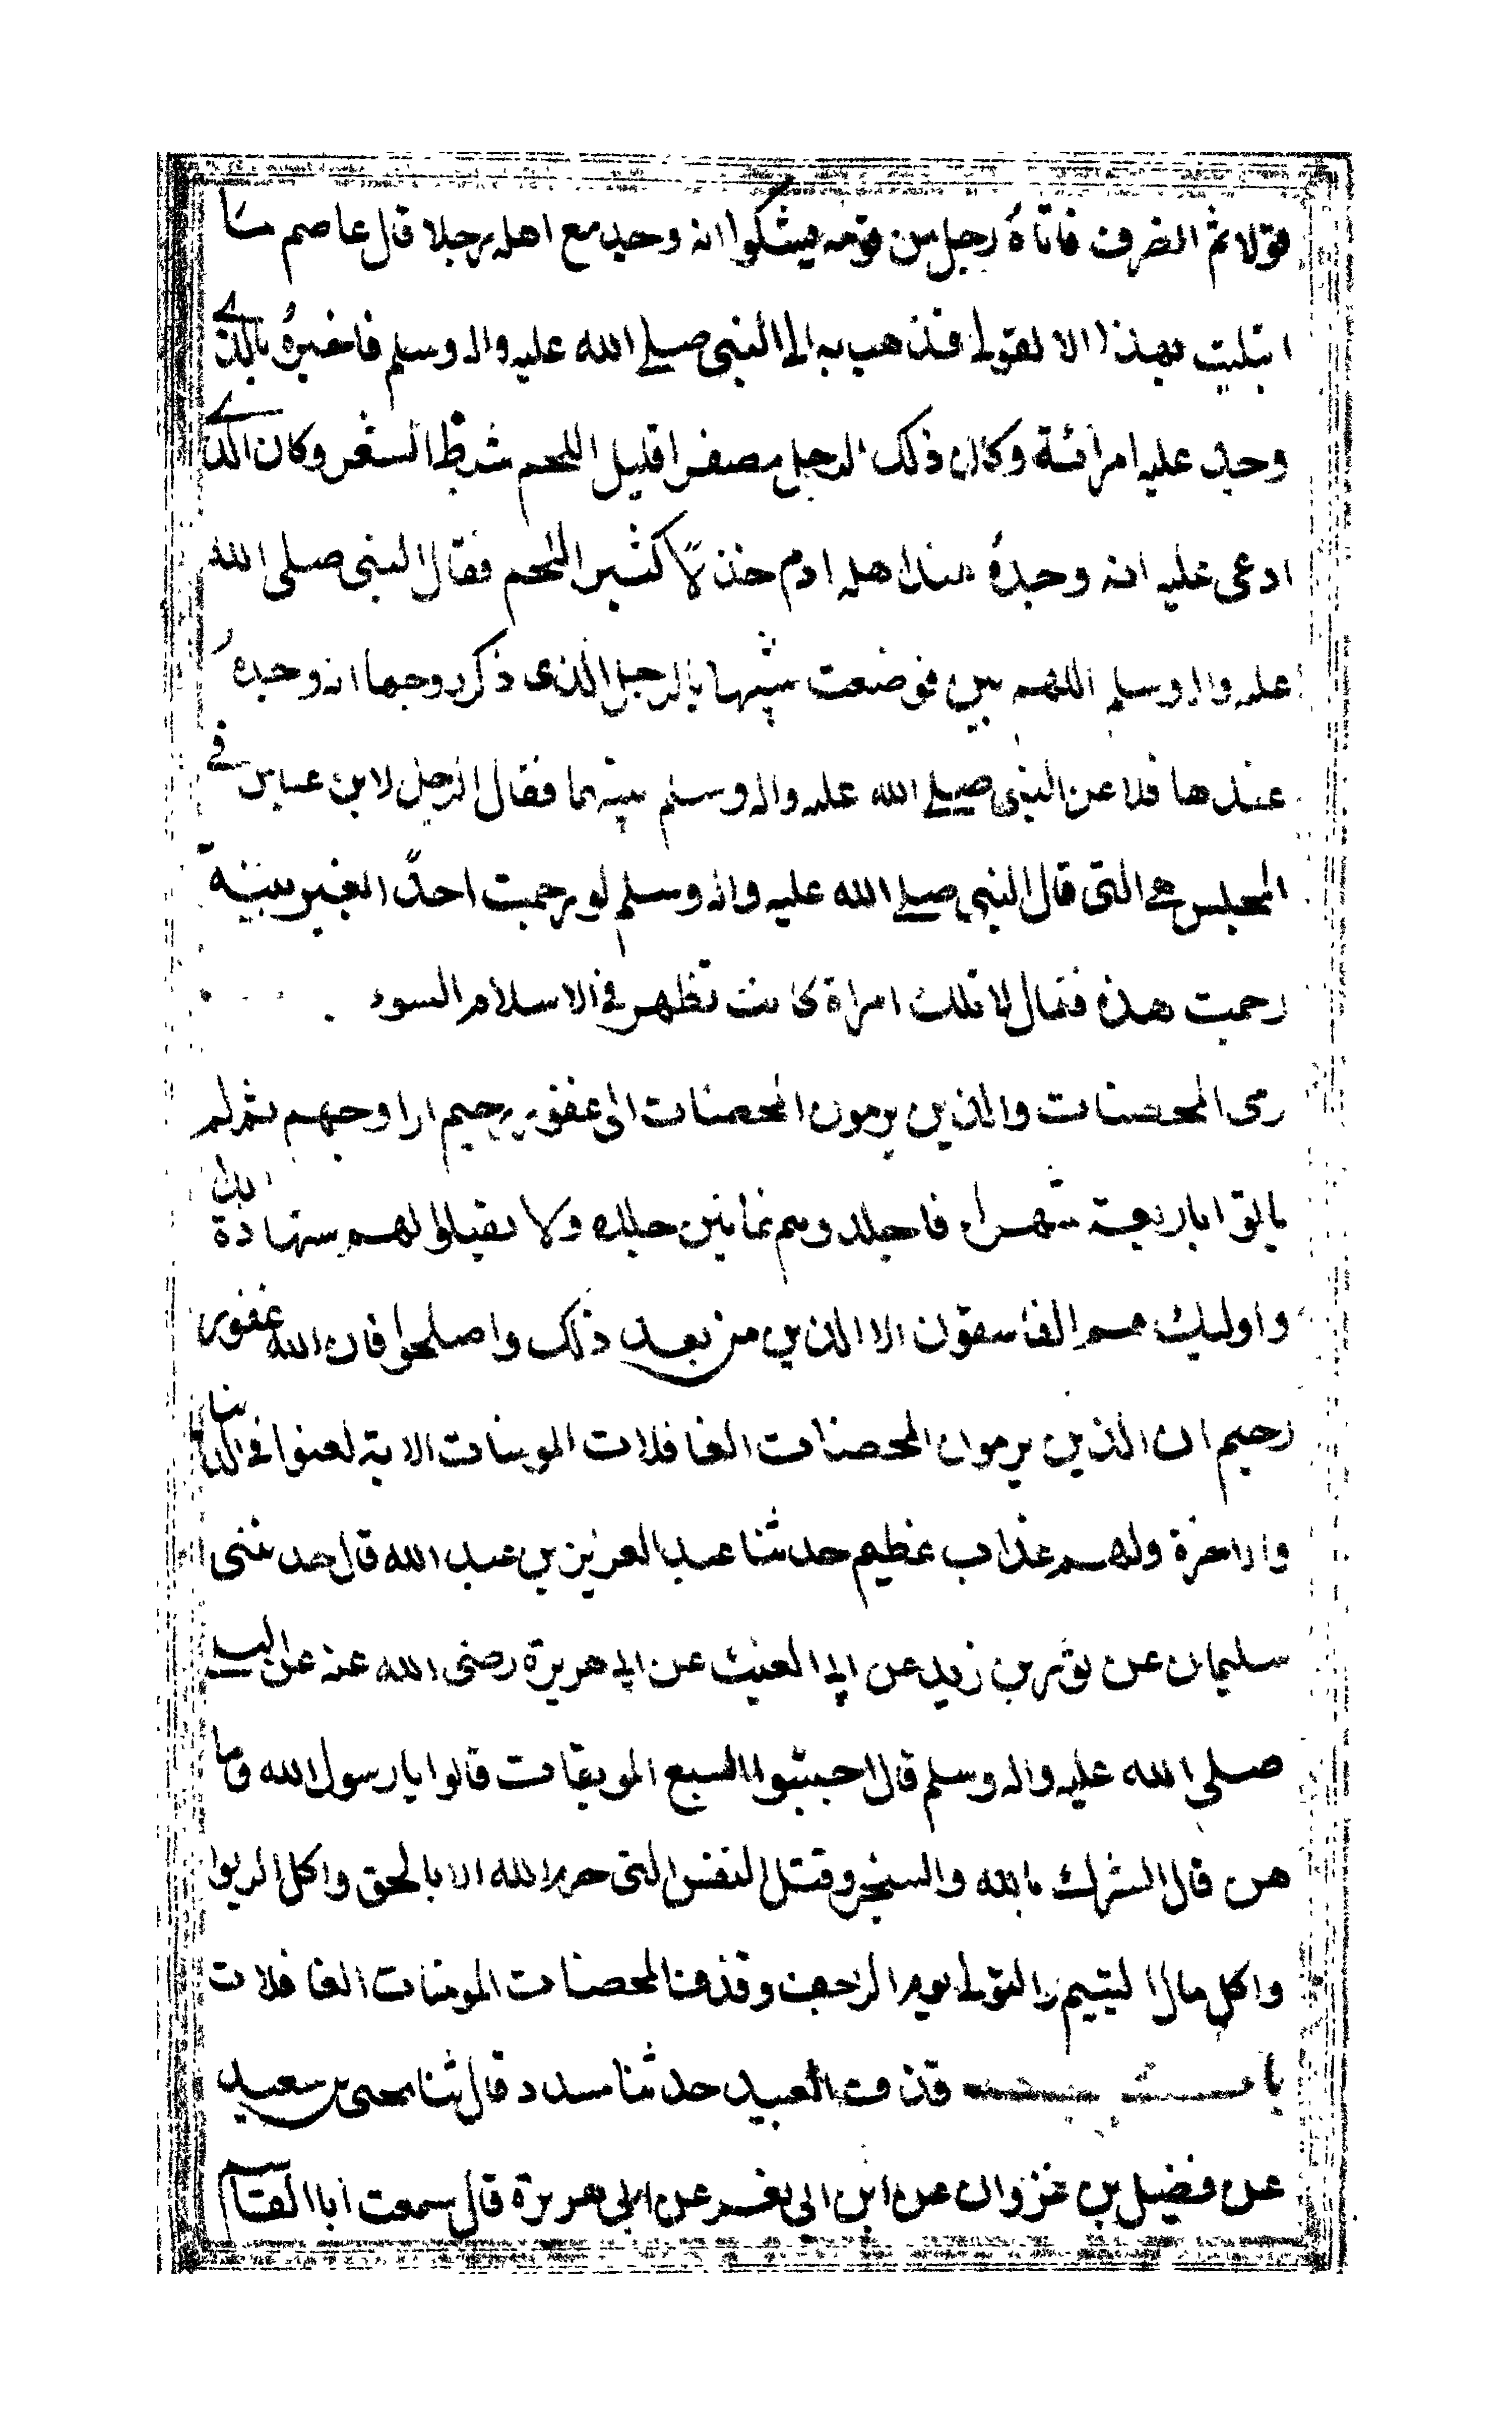 قولا ثم انصرف فاتاه رجل من قومه يشكوا انه وجد مع اهله رجلا قال عاصم ما
ابتليت بهذا الا لقولى فذهب به الى النبى صلى الله عليه واله وسلم فاخبره بالذى
وجد عليه امرائة وكان ذلك الرجل مصفرا قليل اللحم سبط الشعر وكان الذى
ادعى عليه انه وجده عند اهله ادم خذلا كثير اللحم فقال النبى صلى الله
عليه واله وسلم اللهم بين فوضعت شبيها بالرجل الذى ذكر زوجها انه وجده
عندها فلاعن النبى صلى الله عليه واله وسلم بينهما فقال الرجل لابن عباس فى
المجلس هى التى قال النبى صلى الله عليه واله وسلم لو رجمت احدا بغير بينة
رجمت هذه فقال لا تلك امراة كانت تظهر فى الاسلام السوء
رمى المحصنات والذين يرمون المحصنات الى غفور رحيم ازاوجهم ثم لم
ياتوا باربعة شهداء فاجلدوهم ثمانين جلده ولا تقبلوا لهم شهادة ابدا
واوليك هم الفاسقون الا الذين من بعد ذلك واصلحوا فان الله غفور
رحيم ان الذين يرمون المحصنات الغافلات المومنات الاية لعنوا فى الدنيا
والاخرة ولهم عذاب عظيم حدثنا عبد العزيز بن عبد الله قال حدثنى
سليمان عن ثور بن زيد عن ابى الغيث عن ابى هريرة رضى الله عنه عن النبى
صلى الله عليه واله وسلم قال اجتنبوا السبع الموبقات قالوا يا رسول الله وما
هن قال الشرك بالله والسحر وقتل النفس التى حرم الله الا بالحق واكل الربوا
واكل مال اليتيم والتولى يوم الزحف وقذف المحصنات المومنات الغافلات
باب قذف العبيد حدثنا مسدد قال ثنا يحيى بن سعيد
عن فضيل بن غزوان عن ابن ابى نعم عن ابى هريرة قال سمعت ابا القاسم